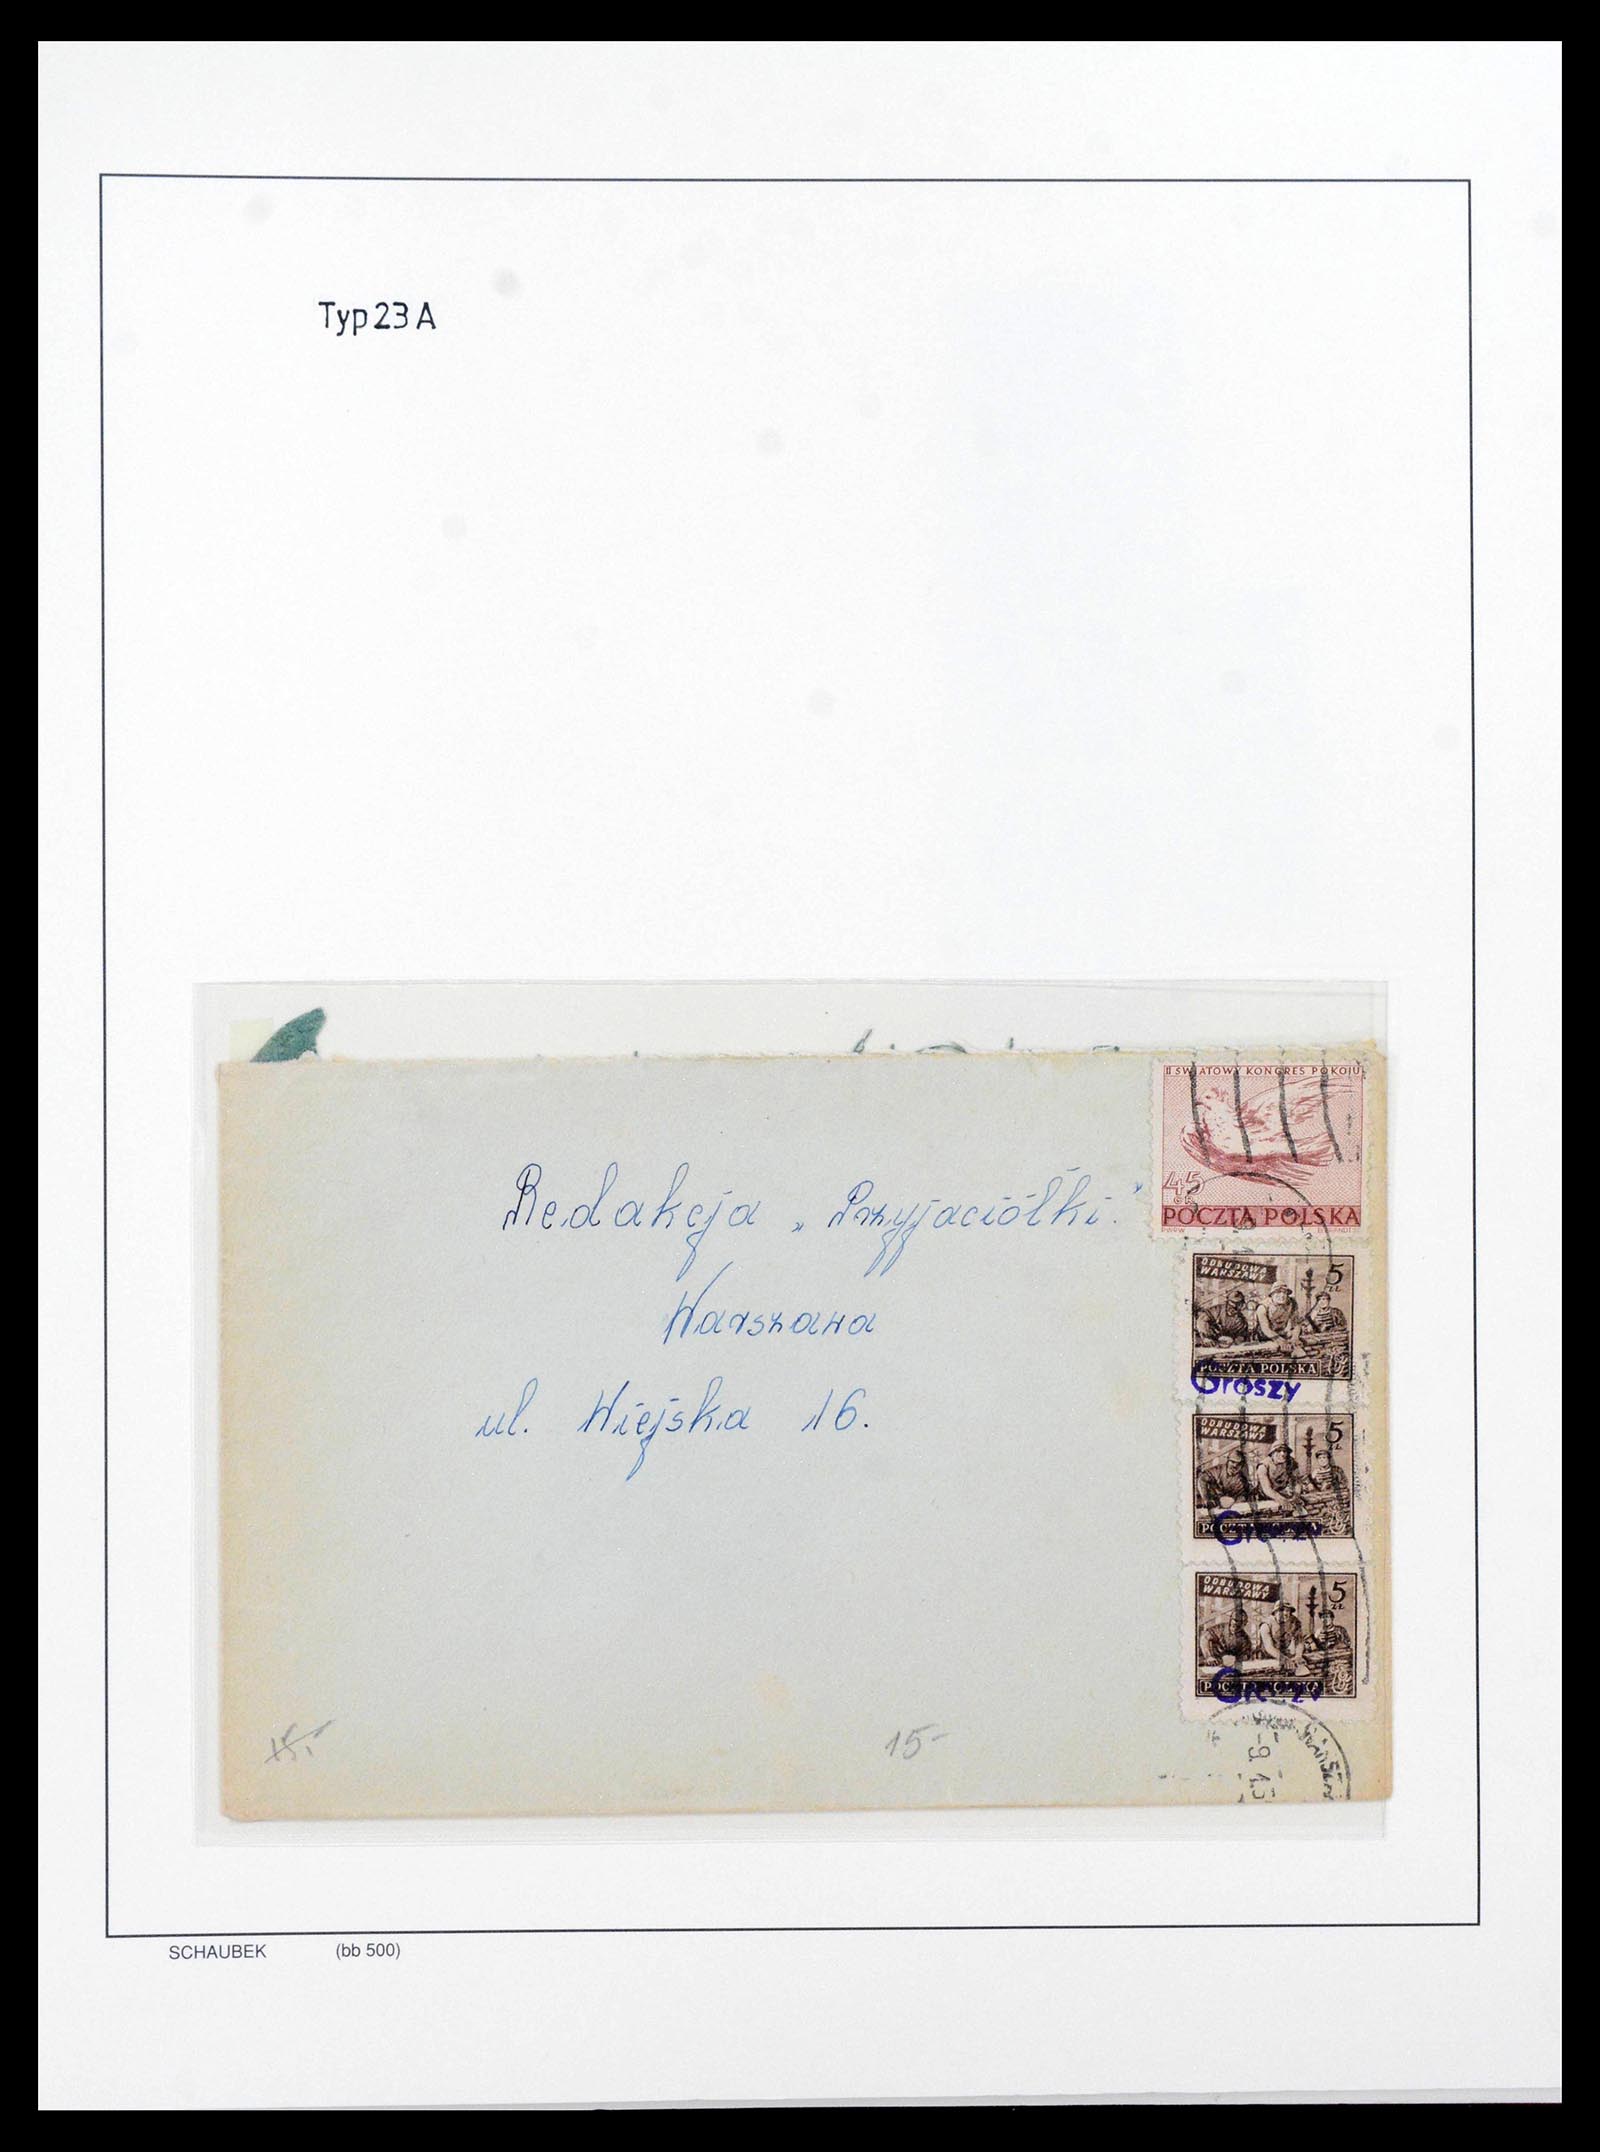 Typ 23 A
II ŚWIATOWY KONGRES POKOJU
45
GR
POCZTA POLSKA
Redakcja „Przyjaciółki"
Warszawa
ul. Wiejska 16.
ODBUDOWA
WARSZAWY
5
ZŁ
POCZTA POLSKA
Groszy
ODBUDOWA
WARSZAWY
5
ZŁ
POCZTA POLSKA
Groszy
ODBUDOWA
WARSZAWY
5
ZŁ
POCZTA POLSKA
Groszy
15.-
15-
SCHAUBEK (bb 500)